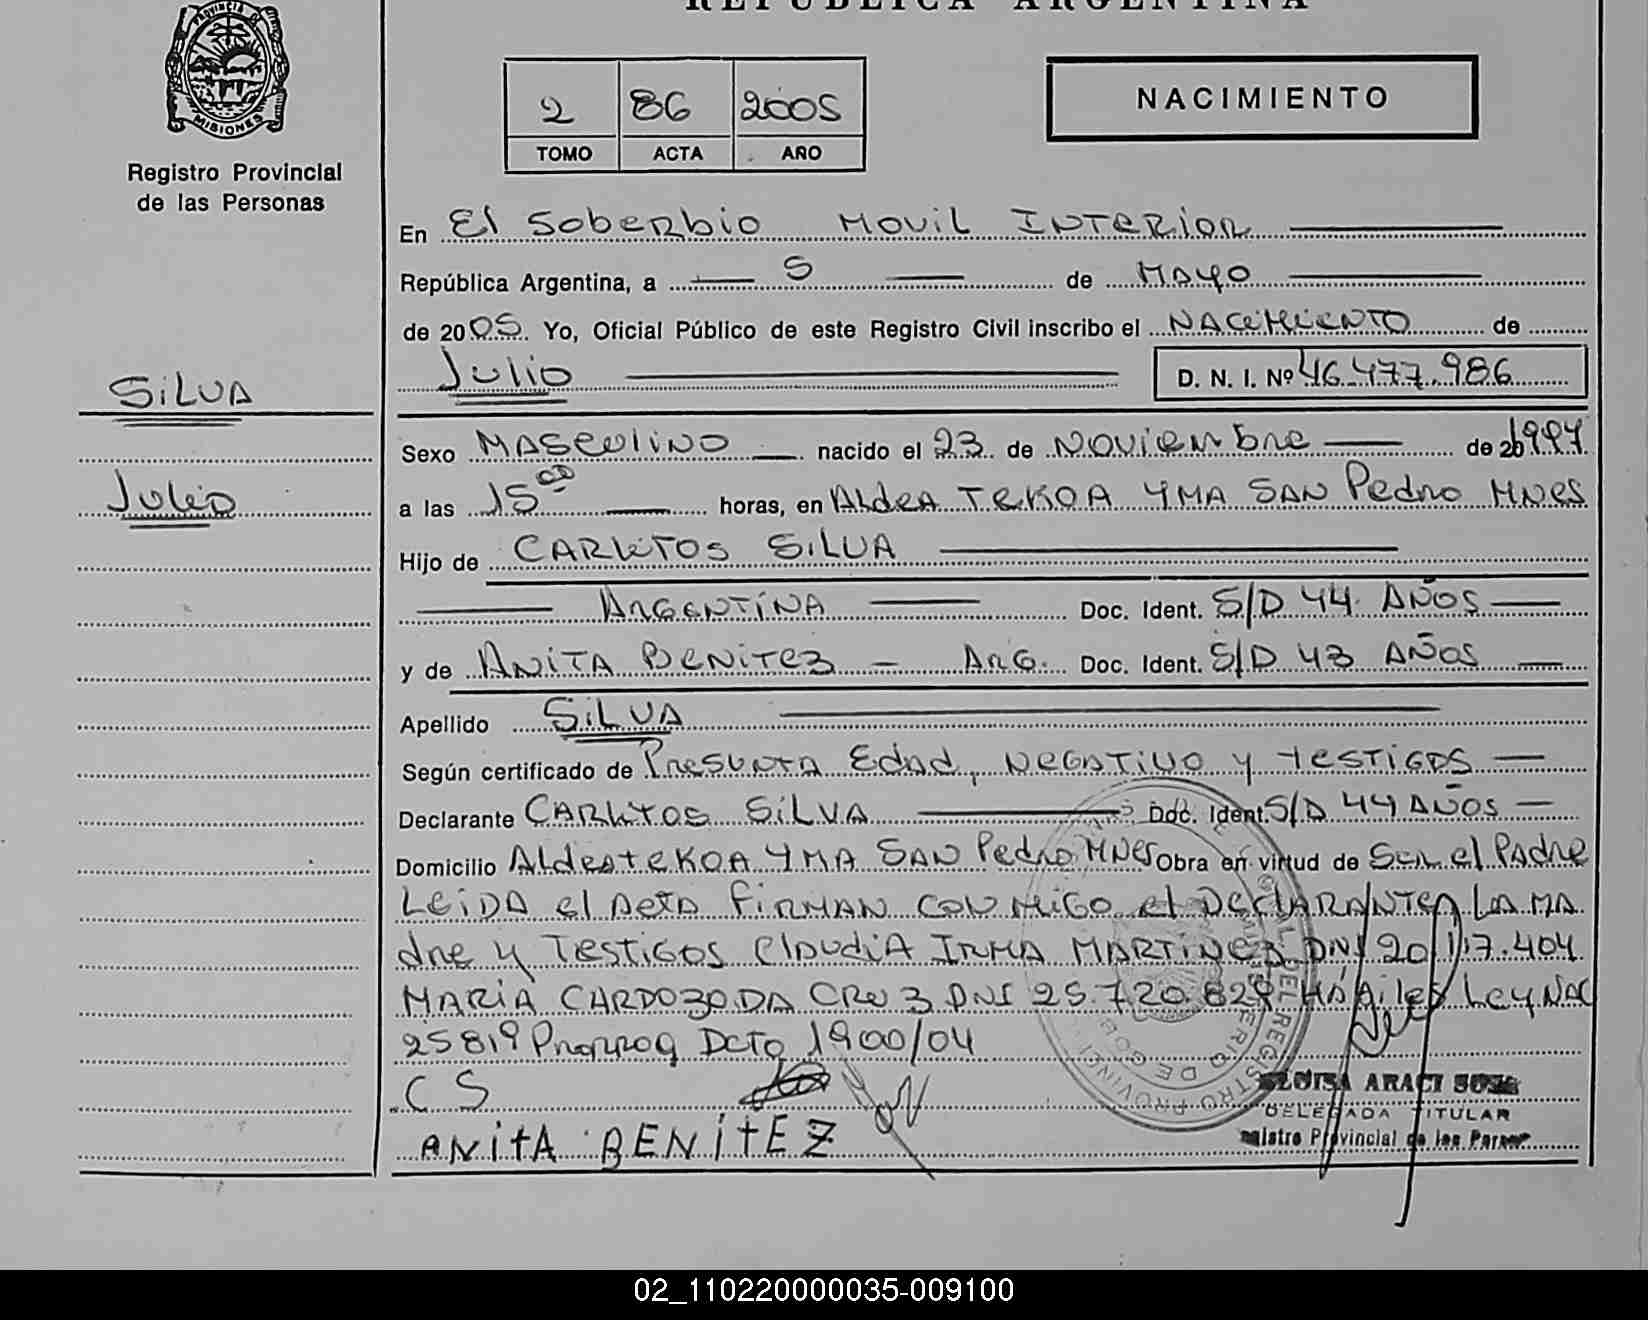 REPUBLICA ARGENTINA
PROVINCIA DE
MISIONES
Registro Provincial
de las Personas
2 86 2005
TOMO ACTA AÑO
NACIMIENTO
En El Soberbio Movil Interior
República Argentina, a 5 de Mayo
de 2005. Yo, Oficial Público de este Registro Civil inscribo el NACIMIENTO de
Julio D. N. I. Nº 46.477.986
SILVA
Julio
Sexo MASCULINO nacido el 23 de Noviembre de 201997
a las 15 00 horas, en Aldea TEKOA YMA SAN Pedro MNES
Hijo de CARLITOS SILVA
ARGENTINA Doc. Ident. S/D 44 AÑOS
y de ANITA BENITEZ ARG. Doc. Ident. S/D 43 AÑOS
Apellido SILVA
Según certificado de Presunta Edad, NEGATIVO y TESTIGOS
Declarante CARLITOS SILVA Doc. Ident. S/D 44 AÑOS
Domicilio Aldea TEKOA YMA SAN Pedro MNES Obra en virtud de Ser el PAdre
LEIDA el ACTA FIRMAN CONMIGO el DECLARANTE, LA MA
dre y TESTIGOS ClAudiA IRMA MARTINEZ DNI 20.117.404
MARIA CARDOZO DA CRUZ DNI 25.720.829 HAbiles Ley NAC
25819 Prorrog Dcto 1900/04
CS
ANITA BENITEZ
ELOISA ARACI SOSA
DELEGADA TITULAR
Registro Provincial de las Person
02_110220000035-009100